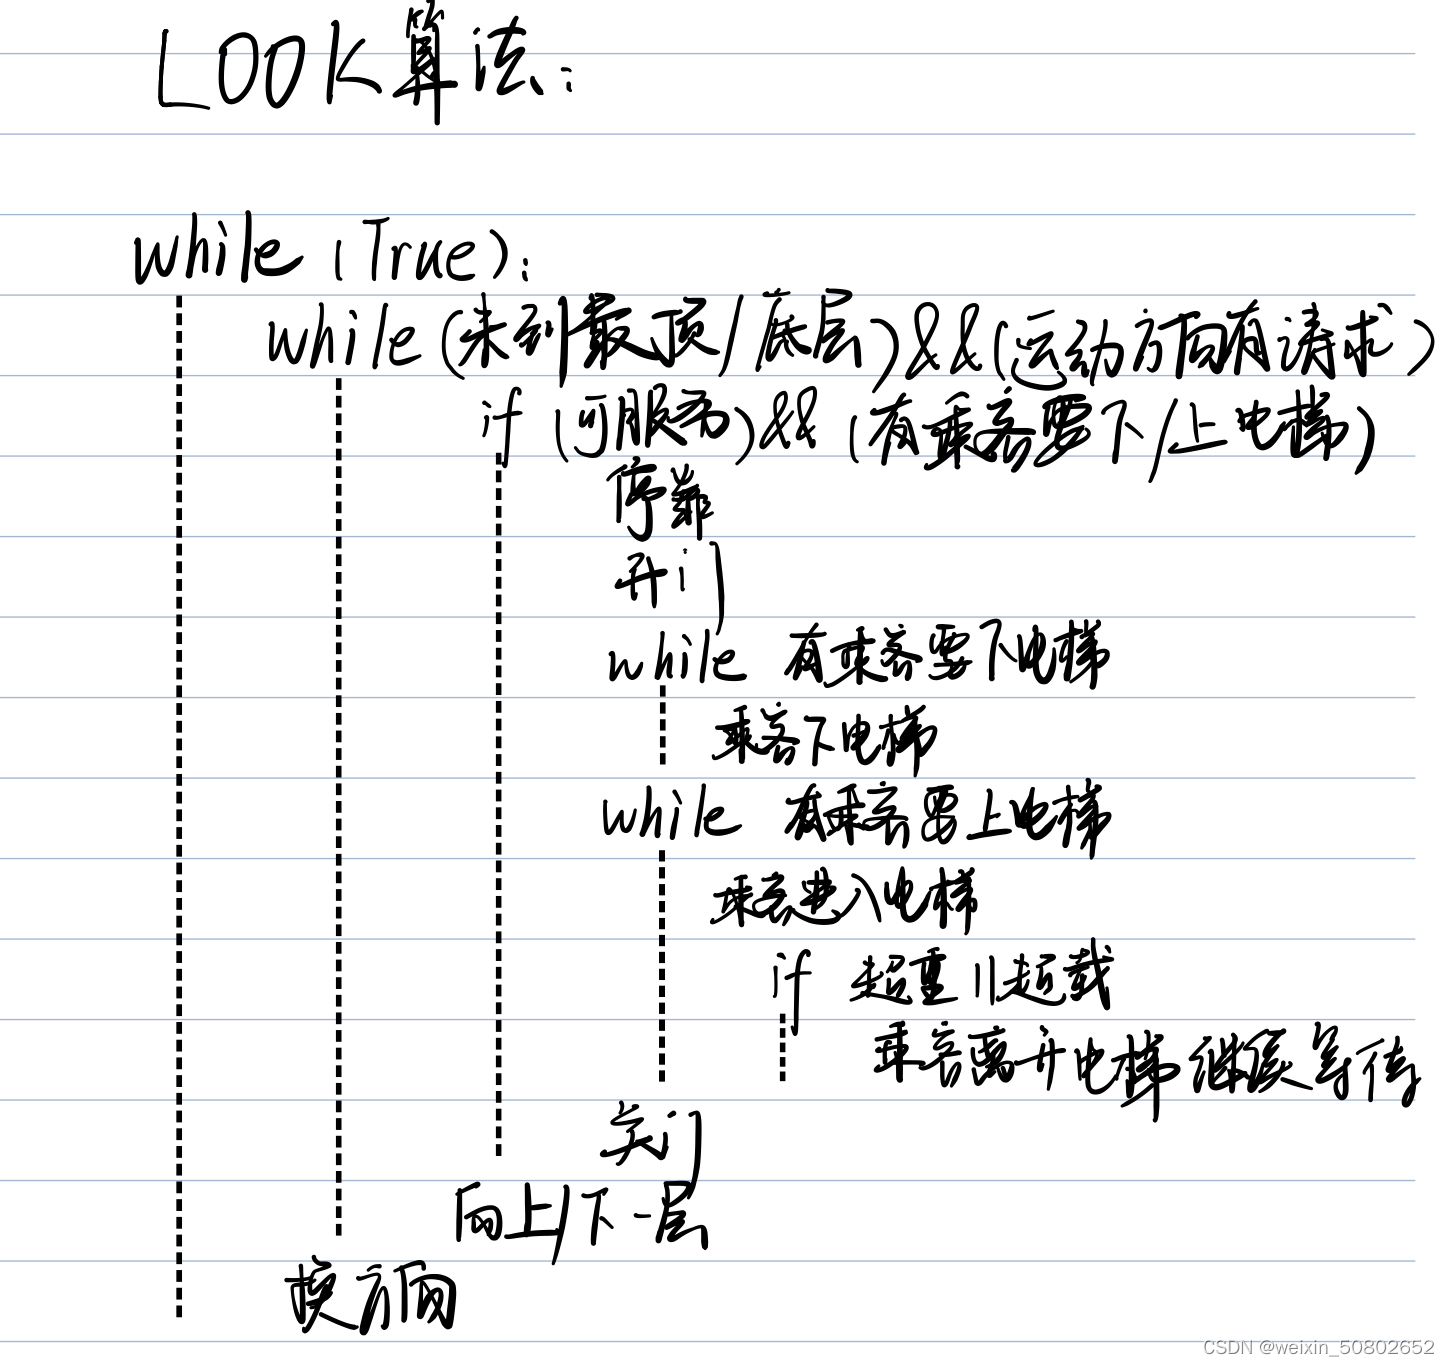 LOOK算法:
while (True):
while (未到最顶/底层)&&(运动方向有请求)
if (可服务)&& (有乘客要下/上电梯)
停靠
开门
while 有乘客要下电梯
乘客下电梯
while 有乘客要上电梯
乘客进入电梯
if 超重||超载
乘客离开电梯继续等待
关门
向上/下一层
换方向
CSDN @weixin_50802652